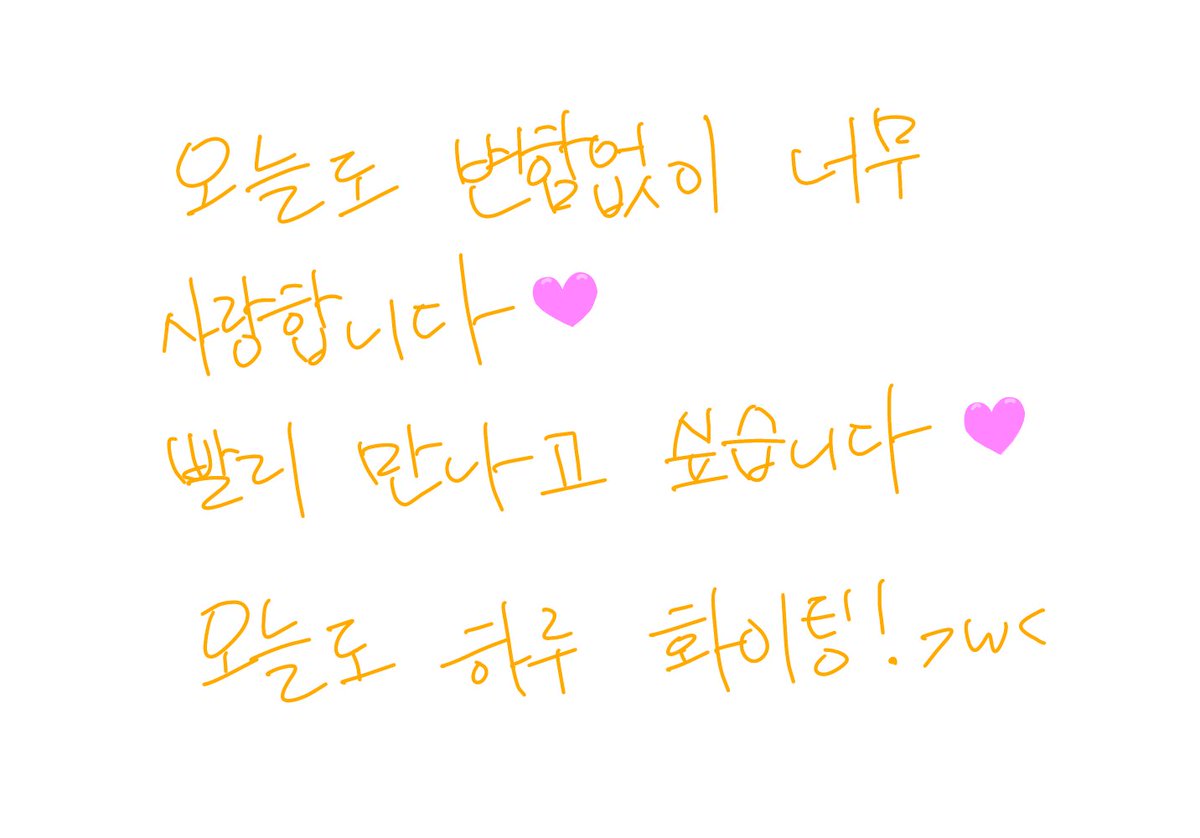 오늘도 변함없이 너무
사랑합니다💜
빨리 만나고 싶습니다💜
오늘도 하루 화이팅! >w<